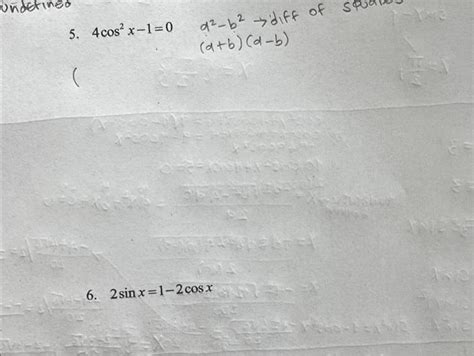 undefined
5. 4cos² x−1=0 a²−b² →diff of squares
(a+b)(a−b)
(
6. 2sin x=1−2cos x